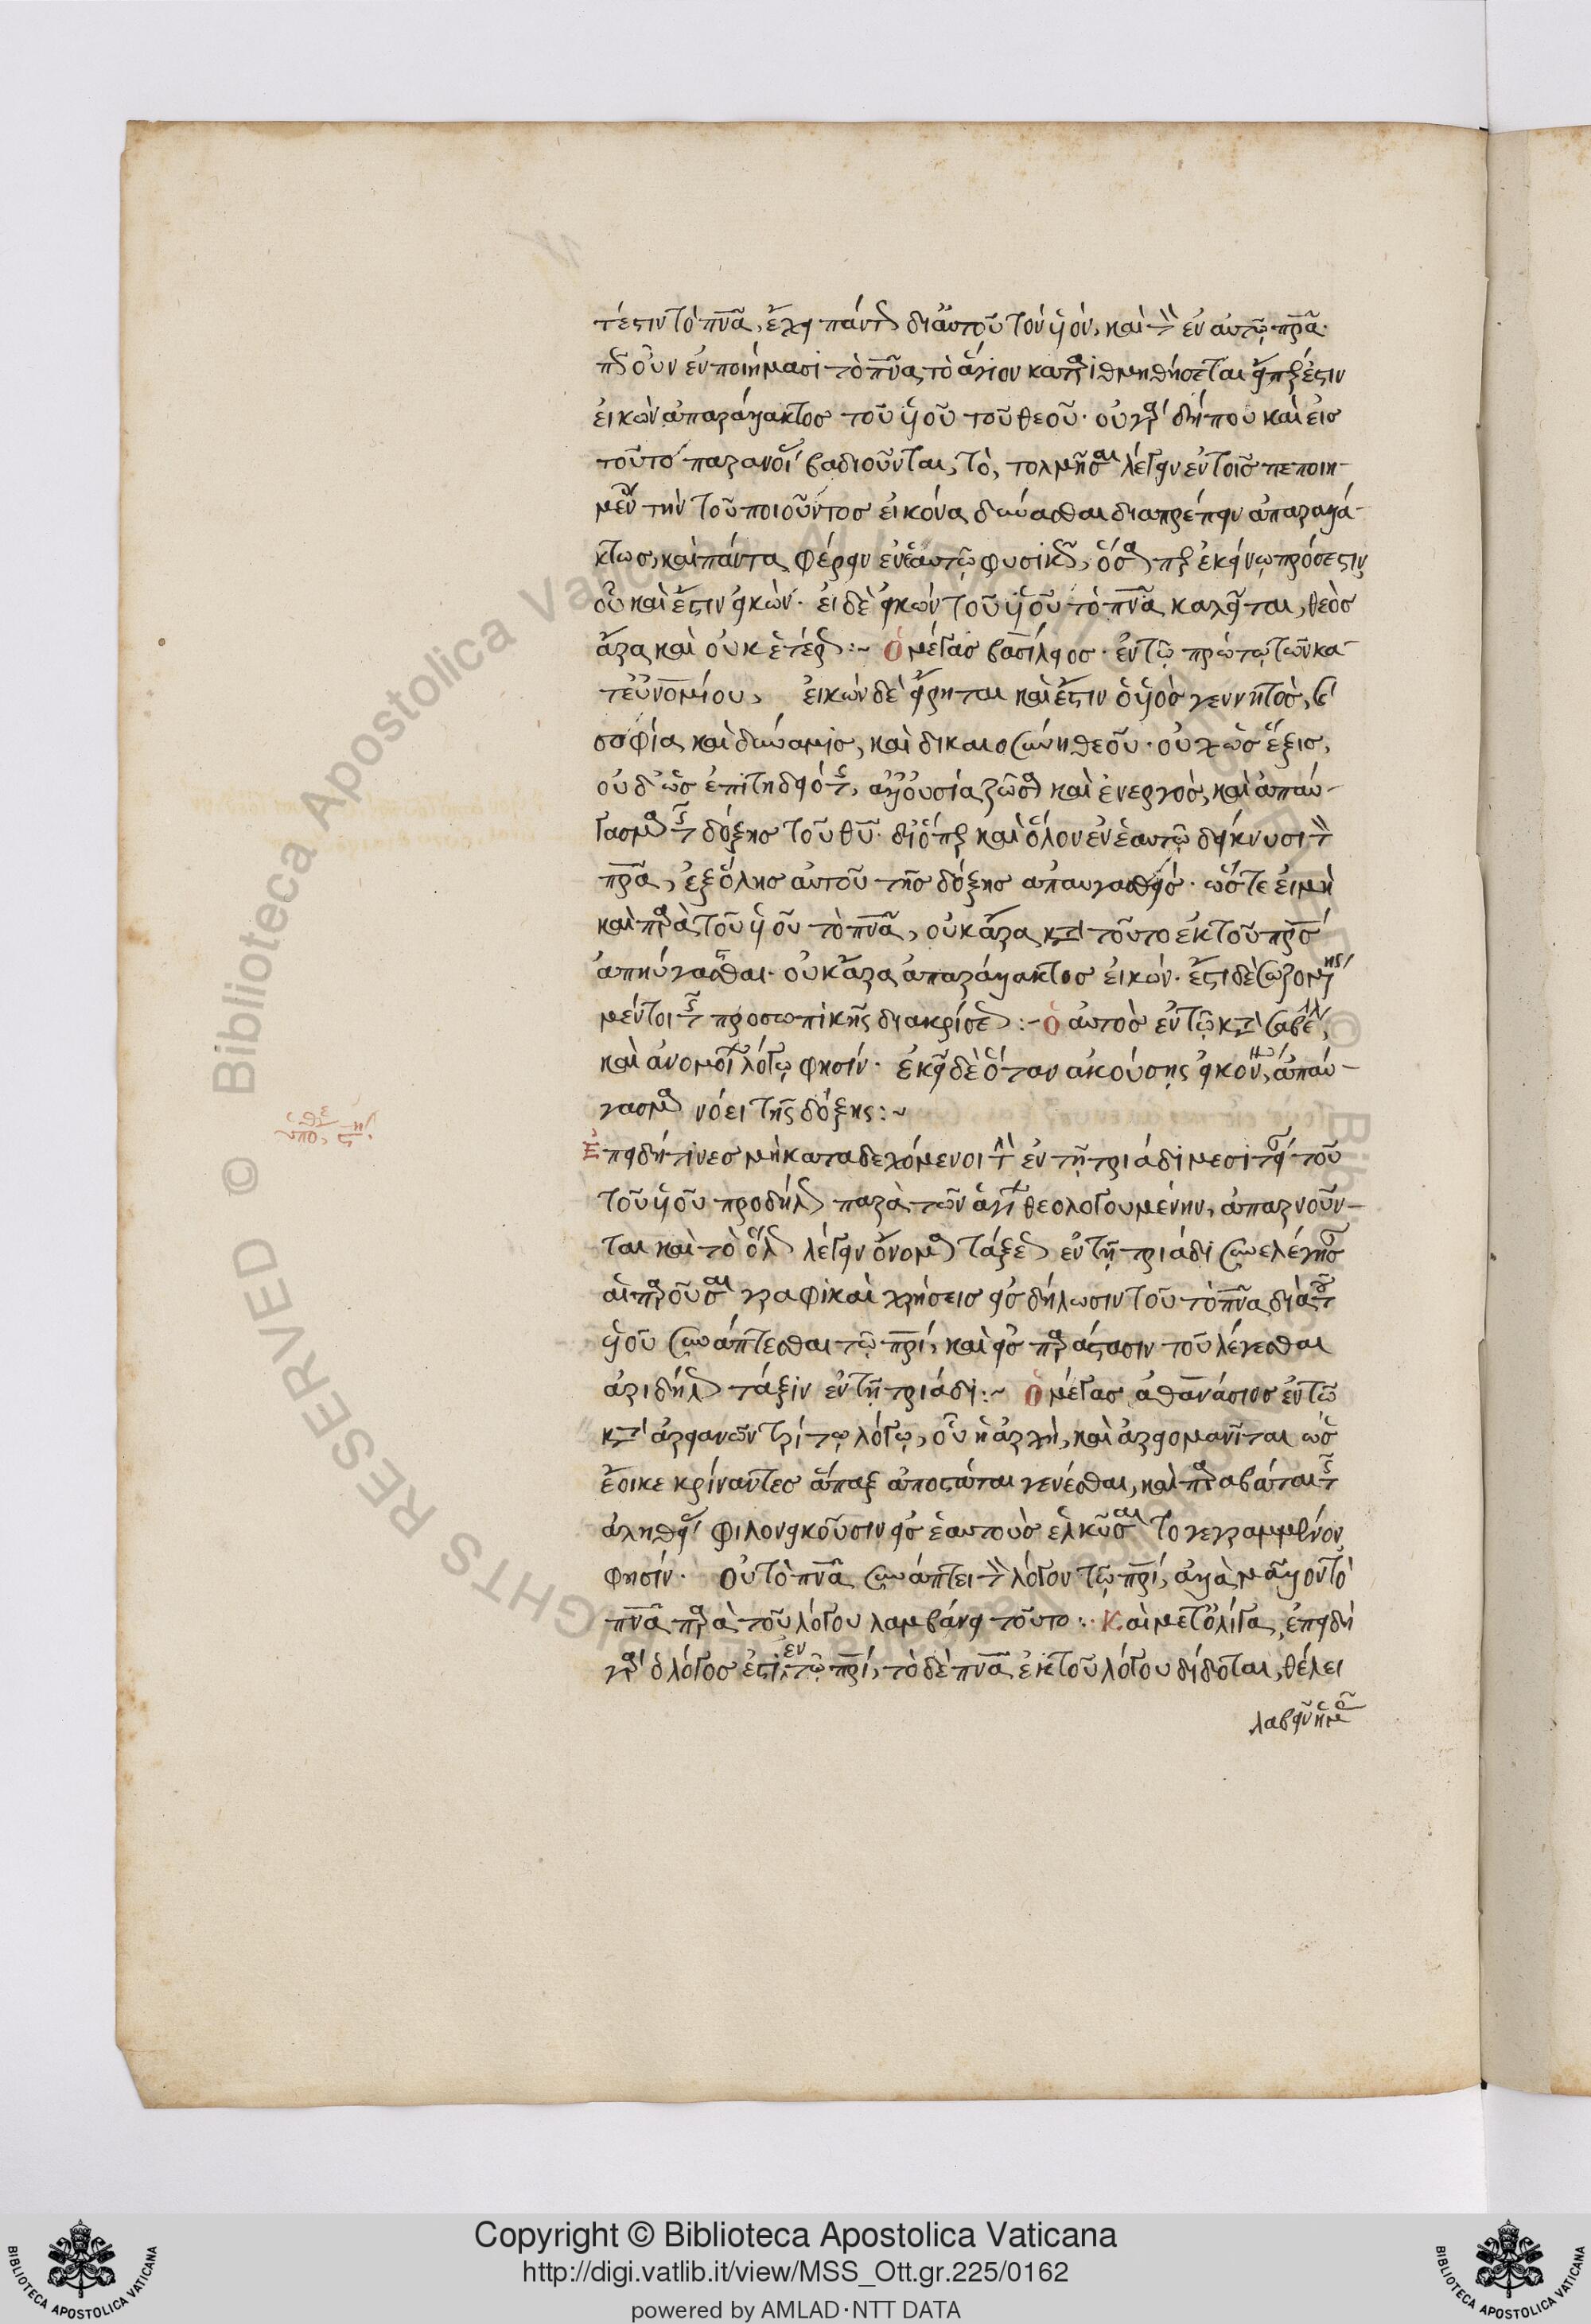 τέστιν τὸ πνᾶ, ἔχει πάντ διαὐτοῦ τὸν ὑὸν, καὶ τὸν ἐν αὐτῷ πρᾶ·
πῶς οὖν ἐν ποιήμασι τὸ πνᾶ τὸ ἅγιον καταριθμηθήσεται εἴπερ ἐστιν
εἰκὼν ἀπαράλλακτος τοῦ ὑοῦ τοῦ θεοῦ· οὐ γὰρ δήπου καὶ εἰς
τοῦτο παρανοί βαδιοῦνται, τὸ, τολμῆσαι λέγειν ἐν τοῖς πεποιη-
μέν τὴν τοῦ ποιοῦντος εἰκόνα δύνασθαι διαπρέπειν ἀπαραλλά-
κτως, καὶ πάντα φέρειν ἐν ἑαυτῷ φυσικῶς, ὅσα περ ἐκείνῳ πρόσεστιν
οὗ καὶ ἔστιν εἰκών· εἰ δὲ εἰκὼν τοῦ ὑοῦ τὸ πνᾶ καλεῖται, θεὸς
ἄρα καὶ οὐκ ἑτέρως :~ Ὁ μέγας βασίλειος· ἐν τῷ πρώτῳ τῶν κα-
τ εὐνομίου, εἰκὼν δὲ εἴρηται καὶ ἔστιν ὁ ὑὸς γεννητὸς, καὶ
σοφία καὶ δύναμις, καὶ δικαιοσύνη θεοῦ· οὐχ ὡς ἕξις,
οὐδ ὡς ἐπιτηδειότης, ἀλλ οὐσία ζῶσα καὶ ἐνεργὸς, καὶ ἀπαύ-
γασμα τῆς δόξης τοῦ θῦ· διόπερ καὶ ὅλον ἐν ἑαυτῷ δείκνυσι τὸν
πρᾶ, ἐξ ὅλης αὐτοῦ τῆς δόξης ἀπαυγασθείς· ὥστε εἰ μὴ
καὶ παρὰ τοῦ ὑοῦ τὸ πνᾶ, οὐκ ἄρα κατὰ τοῦτο ἐκ τοῦ πρς
ἀπηύγασθαι· οὐκ ἄρα ἀπαράλλακτος εἰκών· ἔστι δὲ σωζομένης
μέντοι τῆς προσωπικῆς διακρίσεως :~ ὁ αὐτὸς ἐν τῷ κατὰ σαβελ,
καὶ ἀνομοί λόγῳ φησίν· ἐκεῖ δὲ ὅταν ἀκούσῃς εἰκόνα, ἀπαύ-
γασμα νόει τῆς δόξης :~
Ἐπειδή τινες μὴ καταδεχόμενοι τὴν ἐν τῇ τριάδι μεσιτεί τοῦ
τοῦ ὑοῦ προδήλως παρὰ τῶν ἁγίων θεολογουμένην, ἀπαρνοῦν-
ται καὶ τὸ ὅλως λέγειν ὄνομα τάξεως ἐν τῇ τριάδι συνελέγησαν
αἱ παροῦσαι γραφικαὶ χρήσεις εἰς δήλωσιν τοῦ τὸ πνᾶ διὰ τοῦ
ὑοῦ συνάπτεσθαι τῷ πρί, καὶ εἰς παράστασιν τοῦ λέγεσθαι
ἀριδήλως τάξιν ἐν τῇ τριάδι :~ Ὁ μέγας ἀθανάσιος ἐν τῷ
κατὰ ἀρειανῶν τρίτῳ λόγῳ, οὗ ἡ ἀρχὴ, καὶ ἀρειομανῖται ὡς
ἔοικε κρίναντες ἅπαξ ἀποστάται γενέσθαι, καὶ παραβάται τῆς
ἀληθεί φιλονεικοῦσιν εἰς ἑαυτοὺς ἑλκῦσαι τὸ γεγραμμένον
φησίν· Οὐ τὸ πνᾶ συνάπτει τὸν λόγον τῷ πρί, ἀλλὰ μᾶλλον τὸ
πνᾶ παρὰ τοῦ λόγου λαμβάνει τοῦτο :· Καὶ μετ ὀλίγα, ἐπειδὴ
γὰρ ὁ λόγος ἐστὶν ἐν τῷ πρί, τὸ δὲ πνᾶ ἐκ τοῦ λόγου δίδοται, θέλει
λαβεῖν ἡμᾶς
Copyright © Biblioteca Apostolica Vaticana
http://digi.vatlib.it/view/MSS_Ott.gr.225/0162
powered by AMLAD·NTT DATA